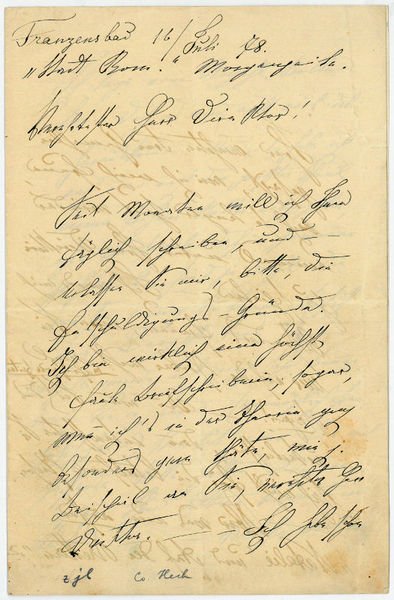 Franzensbad 16/Juli 78.
"Stadt Rom." Morgenzeile.
Verehrtester Herr Direktor!
Seit Monaten will ich Ihnen
täglich schreiben, und
erlassen Sie mir, bitte, die
Entschuldigungs-Gründe.
Ich bin wirklich eine höchst
faule Briefschreiberin, sogar,
wenn ich's in der Theorie ganz
besonders gern thäte, wie z.
Beispiel an Sie, verehrter Herr
Direktor. — Ich habe schon
zjl Co Heck